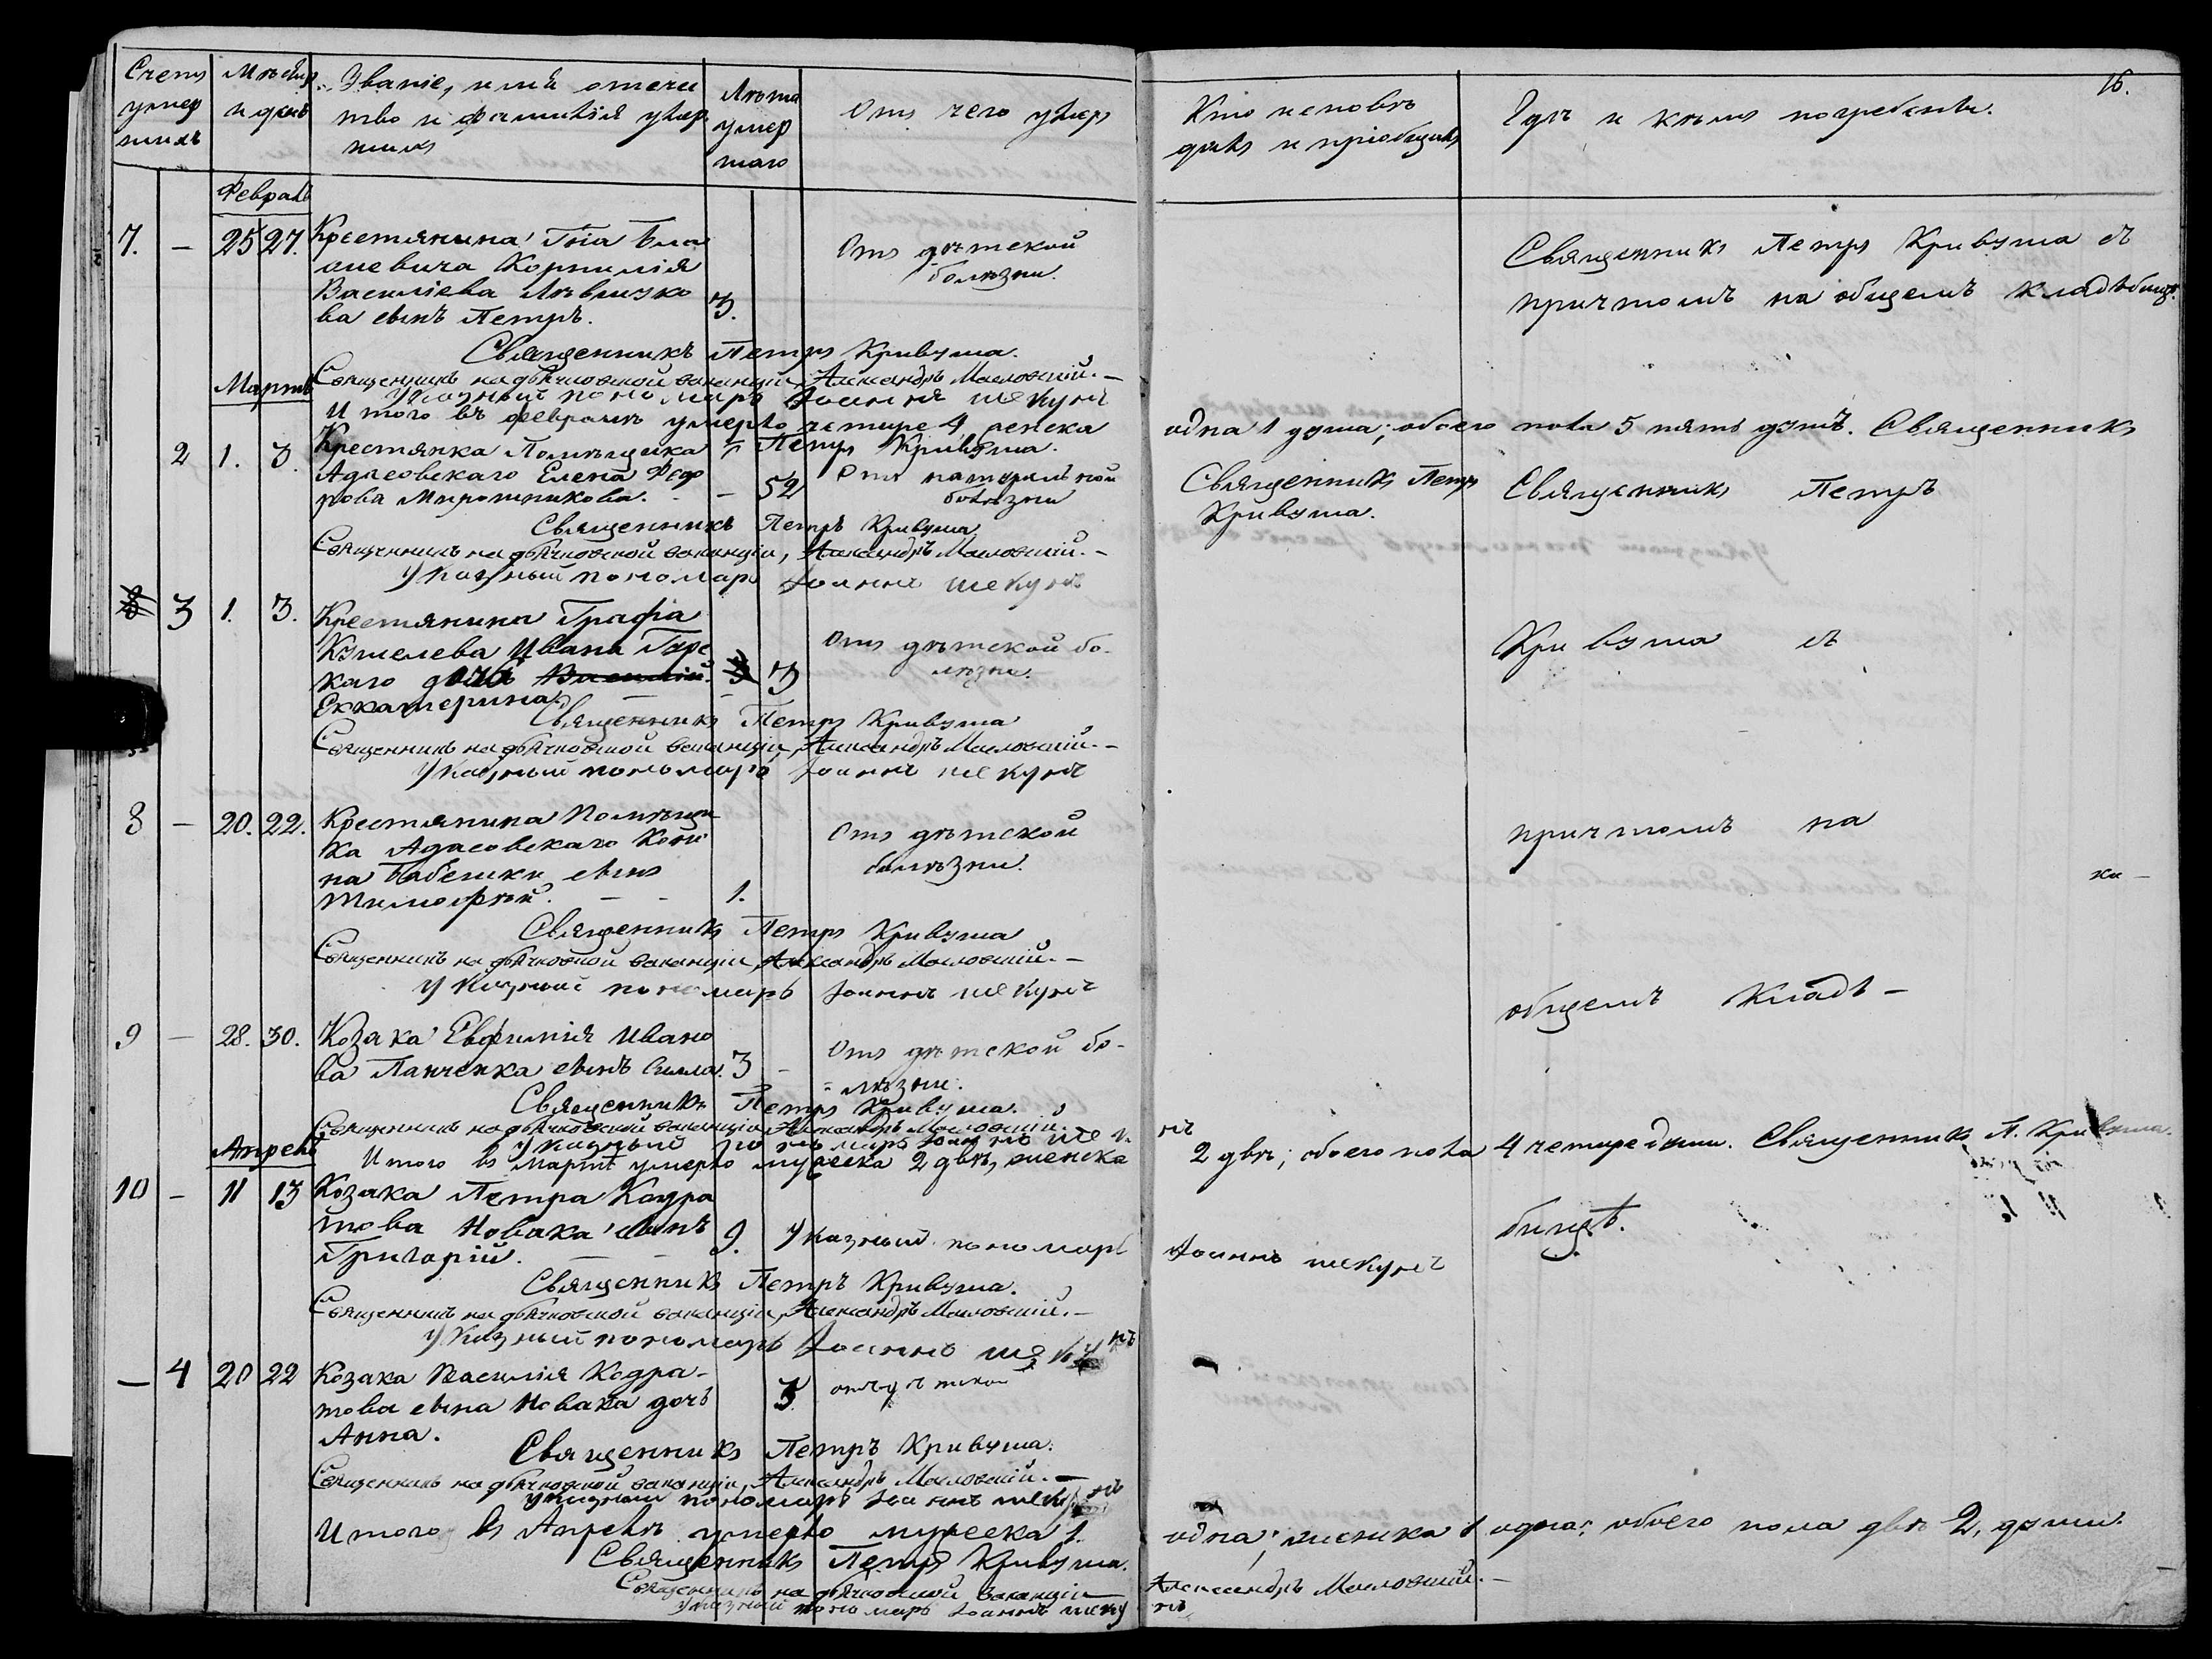 16.
Счетъ умершихъ
Мѣсяцъ и день
Званіе, имя отечество и фамилія умершихъ
Лѣта умершаго
Отъ чего умеръ
Кто исповѣдалъ и пріобщилъ
Гдѣ и кѣмъ погребенъ.
Февраль
7. — 25 27. Крестянина Гна
Корнилія
Василіева
ва сынъ Петръ. 3.
Отъ дѣтской
болѣзни.
Священникъ Петръ Кривуша съ
причтомъ на общемъ кладѣбищѣ.
Священникъ Петръ Кривуша.
Священникъ на дьячковской ваканціи, Александръ Масловскій.—
Указный пономарь Іоаннъ Шекунъ
Итого въ февралѣ умерло четыре 4 женска одна 1 душа; обоего пола 5 пять душъ. Священникъ
Петръ Кривуша.
Мартъ
2 1. 3. Крестянка Помѣщика
Адасовскаго Елена Фед
рова Мирошникова. — 52
Отъ натуральной
болѣзни
Священникъ Петръ
Кривуша.
Священникъ Петръ
Священникъ Петръ Кривуша
Священникъ на дьячковской ваканціи, Александръ Масловскій.—
Указный пономарь Іоаннъ Шекунъ
3 1. 3. Крестянина Графа
Кушелева Ивана Гарс
каго дочь
Еккатерина. — 3
Отъ дѣтской бо-
лѣзни.
Кривуша съ
Священникъ Петръ Кривуша
Священникъ на дьячковской ваканціи, Александръ Масловскій.—
Указный пономарь Іоаннъ Шекунъ
8 — 20. 22. Крестянина Помѣщи
ка Адасовскаго Коні
на Бабешки сынъ
Тимофѣй. — — 1.
Отъ дѣтской
болѣзни.
причтомъ на
Священникъ Петръ Кривуша
Священникъ на дьячковской ваканціи, Александръ Масловскій.—
Указный пономарь Іоаннъ Шекунъ
общемъ кладѣ—
9 — 28. 30. Козака Евфимія Ивано
ва Панченка сынъ 3 —
Отъ дѣтской бо-
лѣзни.
Священникъ Петръ Кривуша.
Священникъ на дьячковской ваканціи, Александръ Масловскій.
Указный пономарь Іоаннъ Шекунъ
Итого въ Мартѣ умерло мужеска 2 двѣ, женска 2 двѣ; обоего пола 4 четыре души. Священникъ П. Кривуша.
Апрель
10 — 11 13 Козака Петра Кодра
това Новака сынъ
Григорій. — — 9.
Указный пономарь Іоаннъ Шекунъ
бищѣ.
Священникъ Петръ Кривуша.
Священникъ на дьячковской ваканціи, Александръ Масловскій.—
Указный пономарь Іоаннъ Шекунъ
— 4 20 22 Козака Василія Кодра-
това сына Новака дочь
Анна. 3
Священникъ Петръ Кривуша.
Священникъ на дьячковской ваканціи, Александръ Масловскій.—
Указный пономарь Іоаннъ Шекунъ
Итого въ Апрелѣ умерло мужеска 1. одна; женска 1 одна; обоего пола двѣ 2, души.
Священникъ Петръ Кривуша.
Священникъ на дьячковской ваканціи Александръ Масловскій.—
Указный пономарь Іоаннъ Шекунъ